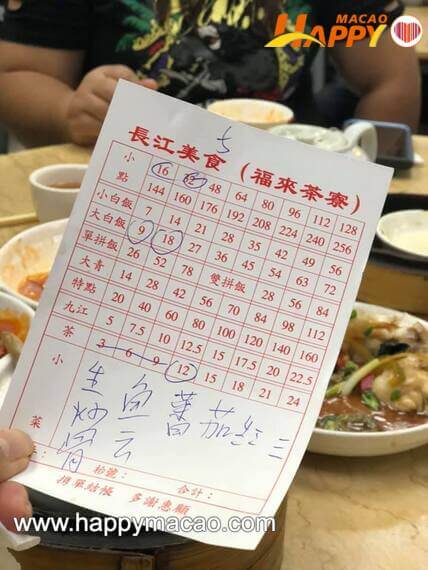 MACAO
HAPPY
5
長江美食(福來茶寮)
小點 16 48 64 80 96 112 128
144 160 176 192 208 224 240 256
小白飯 7 14 21 28 35 42 49 56
大白飯 9 18 27 36 45 54 63 72
單拼飯 26 52 78 雙拼飯 28 56 84
大青 14 28 42 56 70 84 98 112
特點 20 40 60 80 100 120 140 160
九江 5 7.5 10 12.5 15 17.5 20 22.5
茶 3 6 9 12 15 18 21 24
小菜
生魚蕃茄
炒
枱號: 合計:
携單結帳 多謝惠顧
www.happymacao.com